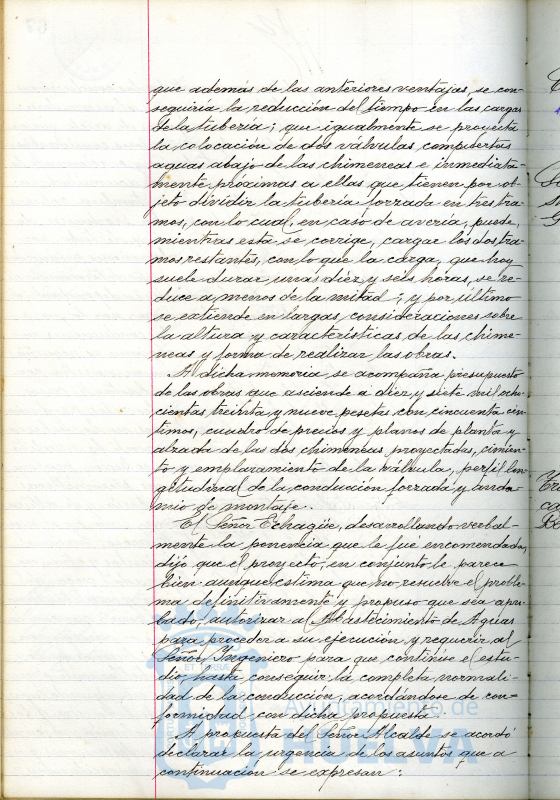 que además de las anteriores ventajas, se con-
seguiria la reducción del tiempo en las cargas
de la tubería; que igualmente se proyecta
la colocación de dos válvulas compuertas
aguas abajo de las chimeneas e inmediata-
mente próximas a ellas que tienen por ob-
jeto dividir la tubería forzada en tres tra-
mos, con lo cual, en caso de avería, puede,
mientras esta se corrige, cargar los dos tra-
mos restantes, con lo que la carga, que hoy
suele durar unas diéz y seis horas, se re-
duce a menos de la mitad; y por último
se extiende en largas consideraciones sobre
la altura y características de las chime-
neas y forma de realizar las obras.
A dicha memoria se acompaña presupuesto
de las obras que asciende a diez y siete mil ocho-
cientas treinta y nueve pesetas con cincuenta cén-
timos, cuadro de precios y planos de planta y
alzada de las dos chimeneas proyectadas, cimien-
to y emplazamiento de la válvula, perfil lon-
gitudinal de la conducción forzada y anda-
mio de montaje.
El Señor Echagüe, desarrollando verbal-
mente la ponencia que le fué encomendada,
dijo que el proyecto, en conjunto le parece
bien aunque estima que no resuelve el proble-
ma definitivamente y propuso que sea apro-
bado, autorizar al Abastecimiento de Aguas
para proceder a su ejecución y requerir al
Señor Ingeniero para que continúe el estu-
dio hasta conseguir la completa normali-
dad de la conducción, acordándose de con-
formidad con dicha propuesta.
A propuesta del Señor Alcalde se acordó
declarar la urgencia de los asuntos que a
continuación se expresan:
Ayuntamiento de
HUELVA